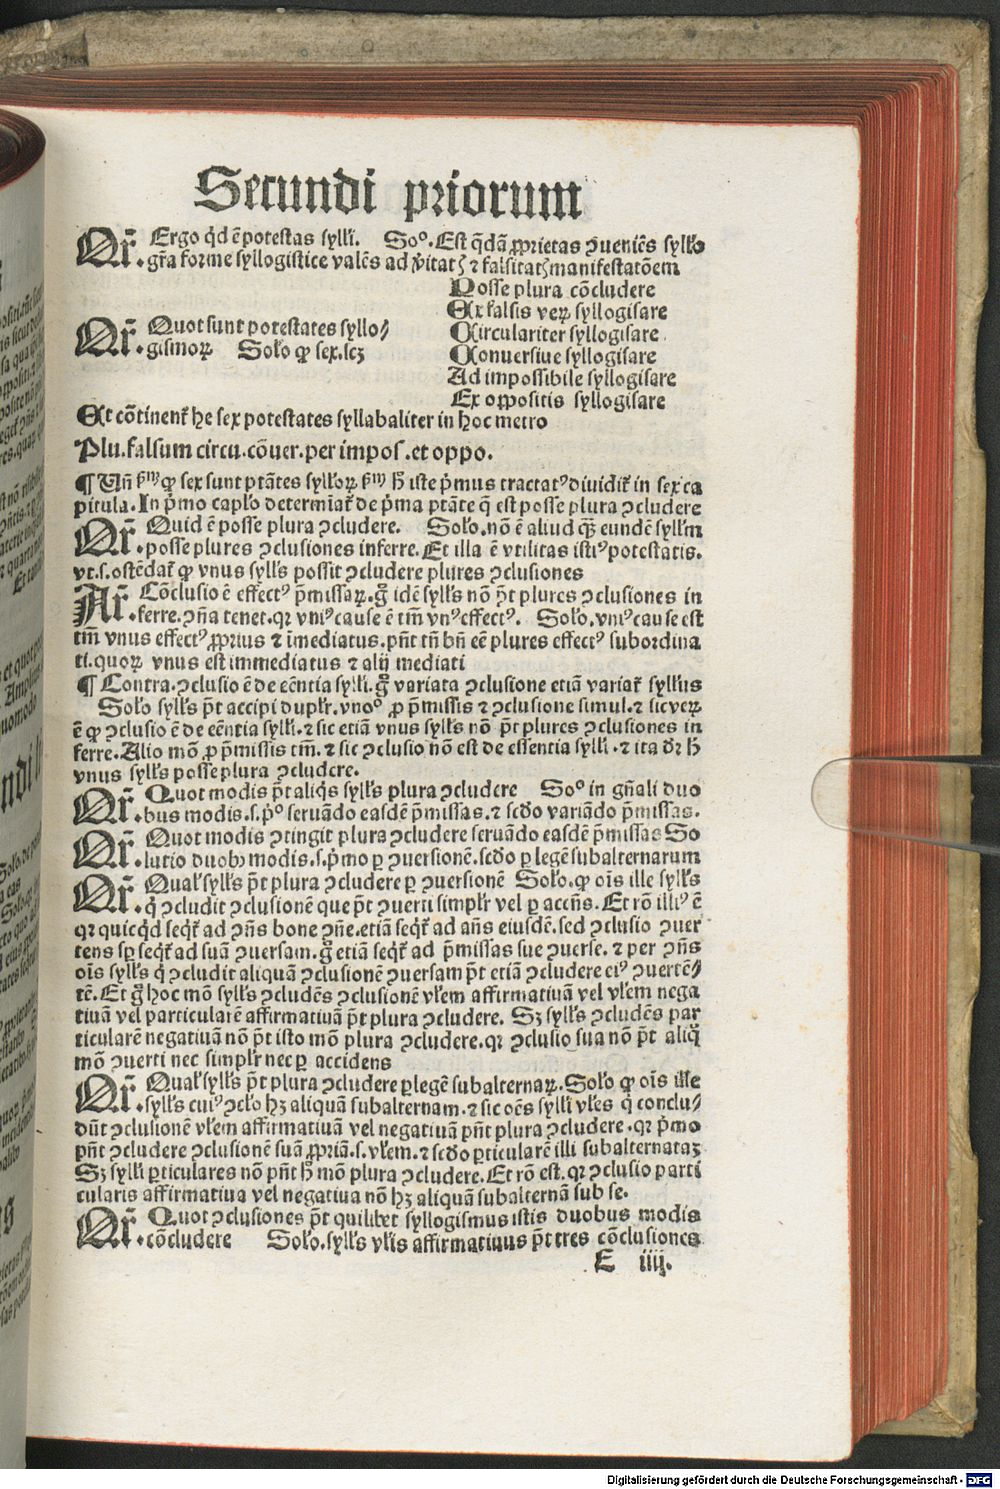 Secundi priorum
Qr̄. Ergo qd̄ ē potestas sylli. Soº. Est q̄dā ꝓprietas ꝯueniēs syllo
gr̄a forme syllogistice valēs ad v̓itatꝫ ⁊ falsitatꝫ manifestatōem
Posse plura cōcludere
Ex falsis veꝝ syllogisare
Qr̄. Quot sunt potestates syllo⸗
Circulariter syllogisare
gismoꝝ Solo ꝙ sex. scꝫ
Conuersiue syllogisare
Ad impossibile syllogisare
Ex oppositis syllogisare
Et cōtinent̄ he sex potestates syllabaliter in hoc metro
Plu. falsum circu. cōuer. per impos. et oppo.
¶ Vn̄ ꝙ sex sunt ptātes sylloꝝ iste p̓mus tractatꝰ diuidit̄ in sex ca
pitula. In p̓mo caplo determiat̄ de p̓ma ptāte q̄ est posse plura ꝯcludere
Qr̄. Quid ē posse plura ꝯcludere. Solo. nō ē aliud qꝫ̄ eundē syllm
posse plures ꝯclusiones inferre. Et illa ē vtilitas istiꝰ potestatis.
vt. s. ostēdat̄ ꝙ vnus sylls possit ꝯcludere plures ꝯclusiones
Ar̄. Cōclusio ē effectꝰ p̄missaꝝ. g̊ idē sylls nō p̄t plures ꝯclusiones in
ferre. ꝯn̄a tenet. qꝛ vniꝰ cause ē tm̄ vnꝰ effectꝰ. Solo. vniꝰ cause est
tm̄ vnus effectꝰ ꝓprius ⁊ īmediatus. pn̄t tn̄ bn̄ eē plures effectꝰ subordina
ti. quoꝝ vnus est immediatus ⁊ alij mediati
¶ Contra. ꝯclusio ē de eēntia sylli. g̊ variata ꝯclusione etiā variat̄ syllus
Solo sylls p̄t accipi duplr. vnoº ꝓ p̄missis ⁊ ꝯclusione simul. ⁊ sic veꝝ
ē ꝙ ꝯclusio ē de eēntia sylli. ⁊ sic etiā vnus sylls nō p̄t plures ꝯclusiones in
ferre. Alio mō ꝓ p̄missis tm̄. ⁊ sic ꝯclusio nō est de essentia sylli. ⁊ ita dr̄
vnus sylls posse plura ꝯcludere.
Qr̄. Quot modis p̄t aliq̓s sylls plura ꝯcludere Soº in gn̄ali duo
bus modis. s. p̓º seruādo easdē p̄missas. ⁊ scd̄o variādo p̄missas.
Qr̄. Quot modis ꝯtingit plura ꝯcludere seruādo easdē p̄missas So
lutio duobꝫ modis. s. p̓mo ꝑ ꝯuersionē. scd̄o ꝑ legē subalternarum
Qr̄. Qual̓ sylls p̄t plura ꝯcludere ꝑ ꝯuersionē Solo. ꝙ oīs ille sylls
q̓ ꝯcludit ꝯclusionē que p̄t ꝯuerti simplr vel ꝑ accn̄s. Et rō illiꝰ ē
qꝛ quicqd̓ seqt̄ ad ꝯn̄s bone ꝯn̄e. etiā seqt̄ ad an̄s eiusdē. sed ꝯclusio ꝯuer
tens sꝑ seqt̄ ad suā ꝯuersam. g̊ etiā seqt̄ ad p̄missas sue ꝯuerse. ⁊ per ꝯn̄s
oīs sylls q̓ ꝯcludit aliquā ꝯclusionē ꝯuersam p̄t etiā ꝯcludere eiꝰ ꝯuertē⸗
tē. Et g̊ hoc mō sylls ꝯcludēs ꝯclusionē vlem affirmatiuā vel vlem nega
tiuā vel particularē affirmatiuā p̄t plura ꝯcludere. Sꝫ sylls ꝯcludēs par
ticularē negatiuā nō p̄t isto mō plura ꝯcludere. qꝛ ꝯclusio sua nō p̄t aliq̓
mō ꝯuerti nec simplr nec ꝑ accidens
Qr̄. Qual̓ sylls p̄t plura ꝯcludere ꝑ legē subalternaꝝ. Solo ꝙ oīs ille
sylls cuiꝰ ꝯclo hꝫ aliquā subalternam. ⁊ sic oēs sylli vles q̓ conclu⸗
dūt ꝯclusionē vlem affirmatiuā vel negatiuā pn̄t plura ꝯcludere. qꝛ p̓mo
pn̄t ꝯcludere ꝯclusionē suā ꝓpriā. s. vlem. ⁊ scd̄o ꝑticularē illi subalternatā
Sꝫ sylli ꝑticulares nō pn̄t h̄ mō plura ꝯcludere. Et rō est. qꝛ ꝯclusio parti
cularis affirmatiua vel negatiua nō hꝫ aliquā subalternā sub se.
Qr̄. Quot ꝯclusiones p̄t quilibet syllogismus istis duobus modis
cōcludere Solo. sylls vlis affirmatiuus p̄t tres cōclusiones
E iiij.
Digitalisierung gefördert durch die Deutsche Forschungsgemeinschaft - DFG